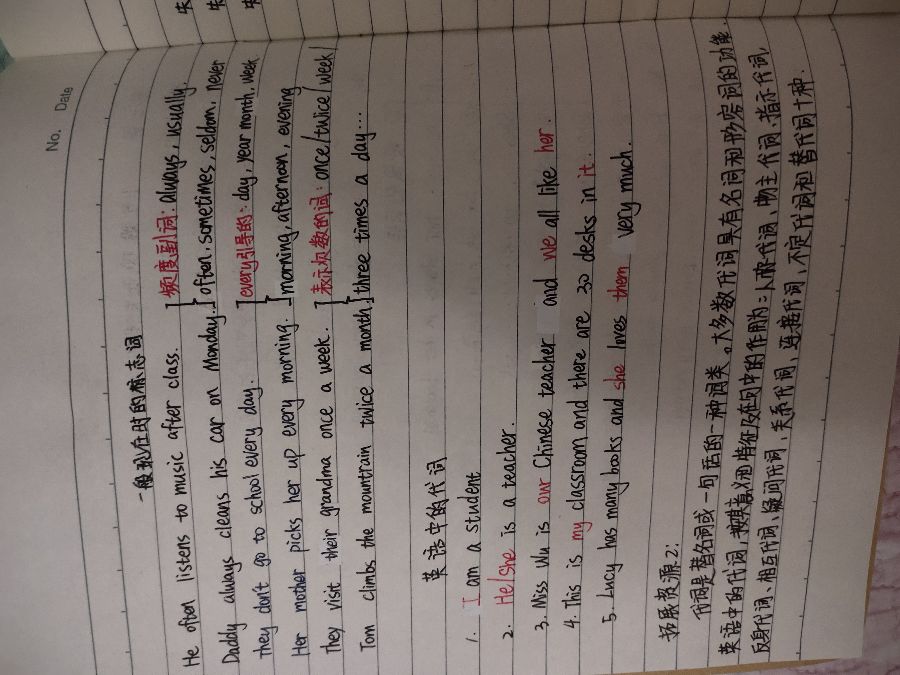 No.
Date
一般现在时的标志词
He often listens to music after class. 频度副词: always, usually,
Daddy always cleans his car on Monday. often, sometimes, seldom, never
They don't go to school every day. every引导的: day, year month, week
Her mother picks her up every morning. morning, afternoon, evening
They visit their grandma once a week. 表示次数的词: once/twice/week/
Tom climbs the mountrain twice a month. three times a day...
英语中的代词
1. I am a student
2. He/She is a teacher.
3. Miss Wu is our Chinese teacher and we all like her.
4. This is my classroom and there are 30 desks in it.
5. Lucy has many books and she loves them very much.
拓展资源2:
代词是替名词或一句话的一种词类。大多数代词具有名词和形容词的功能.
英语中的代词,按其意义和特征及在句中的作用为:人称代词、物主代词、指示代词、
反身代词、相互代词、疑问代词、关系代词、连接代词、不定代词和替代词十种.